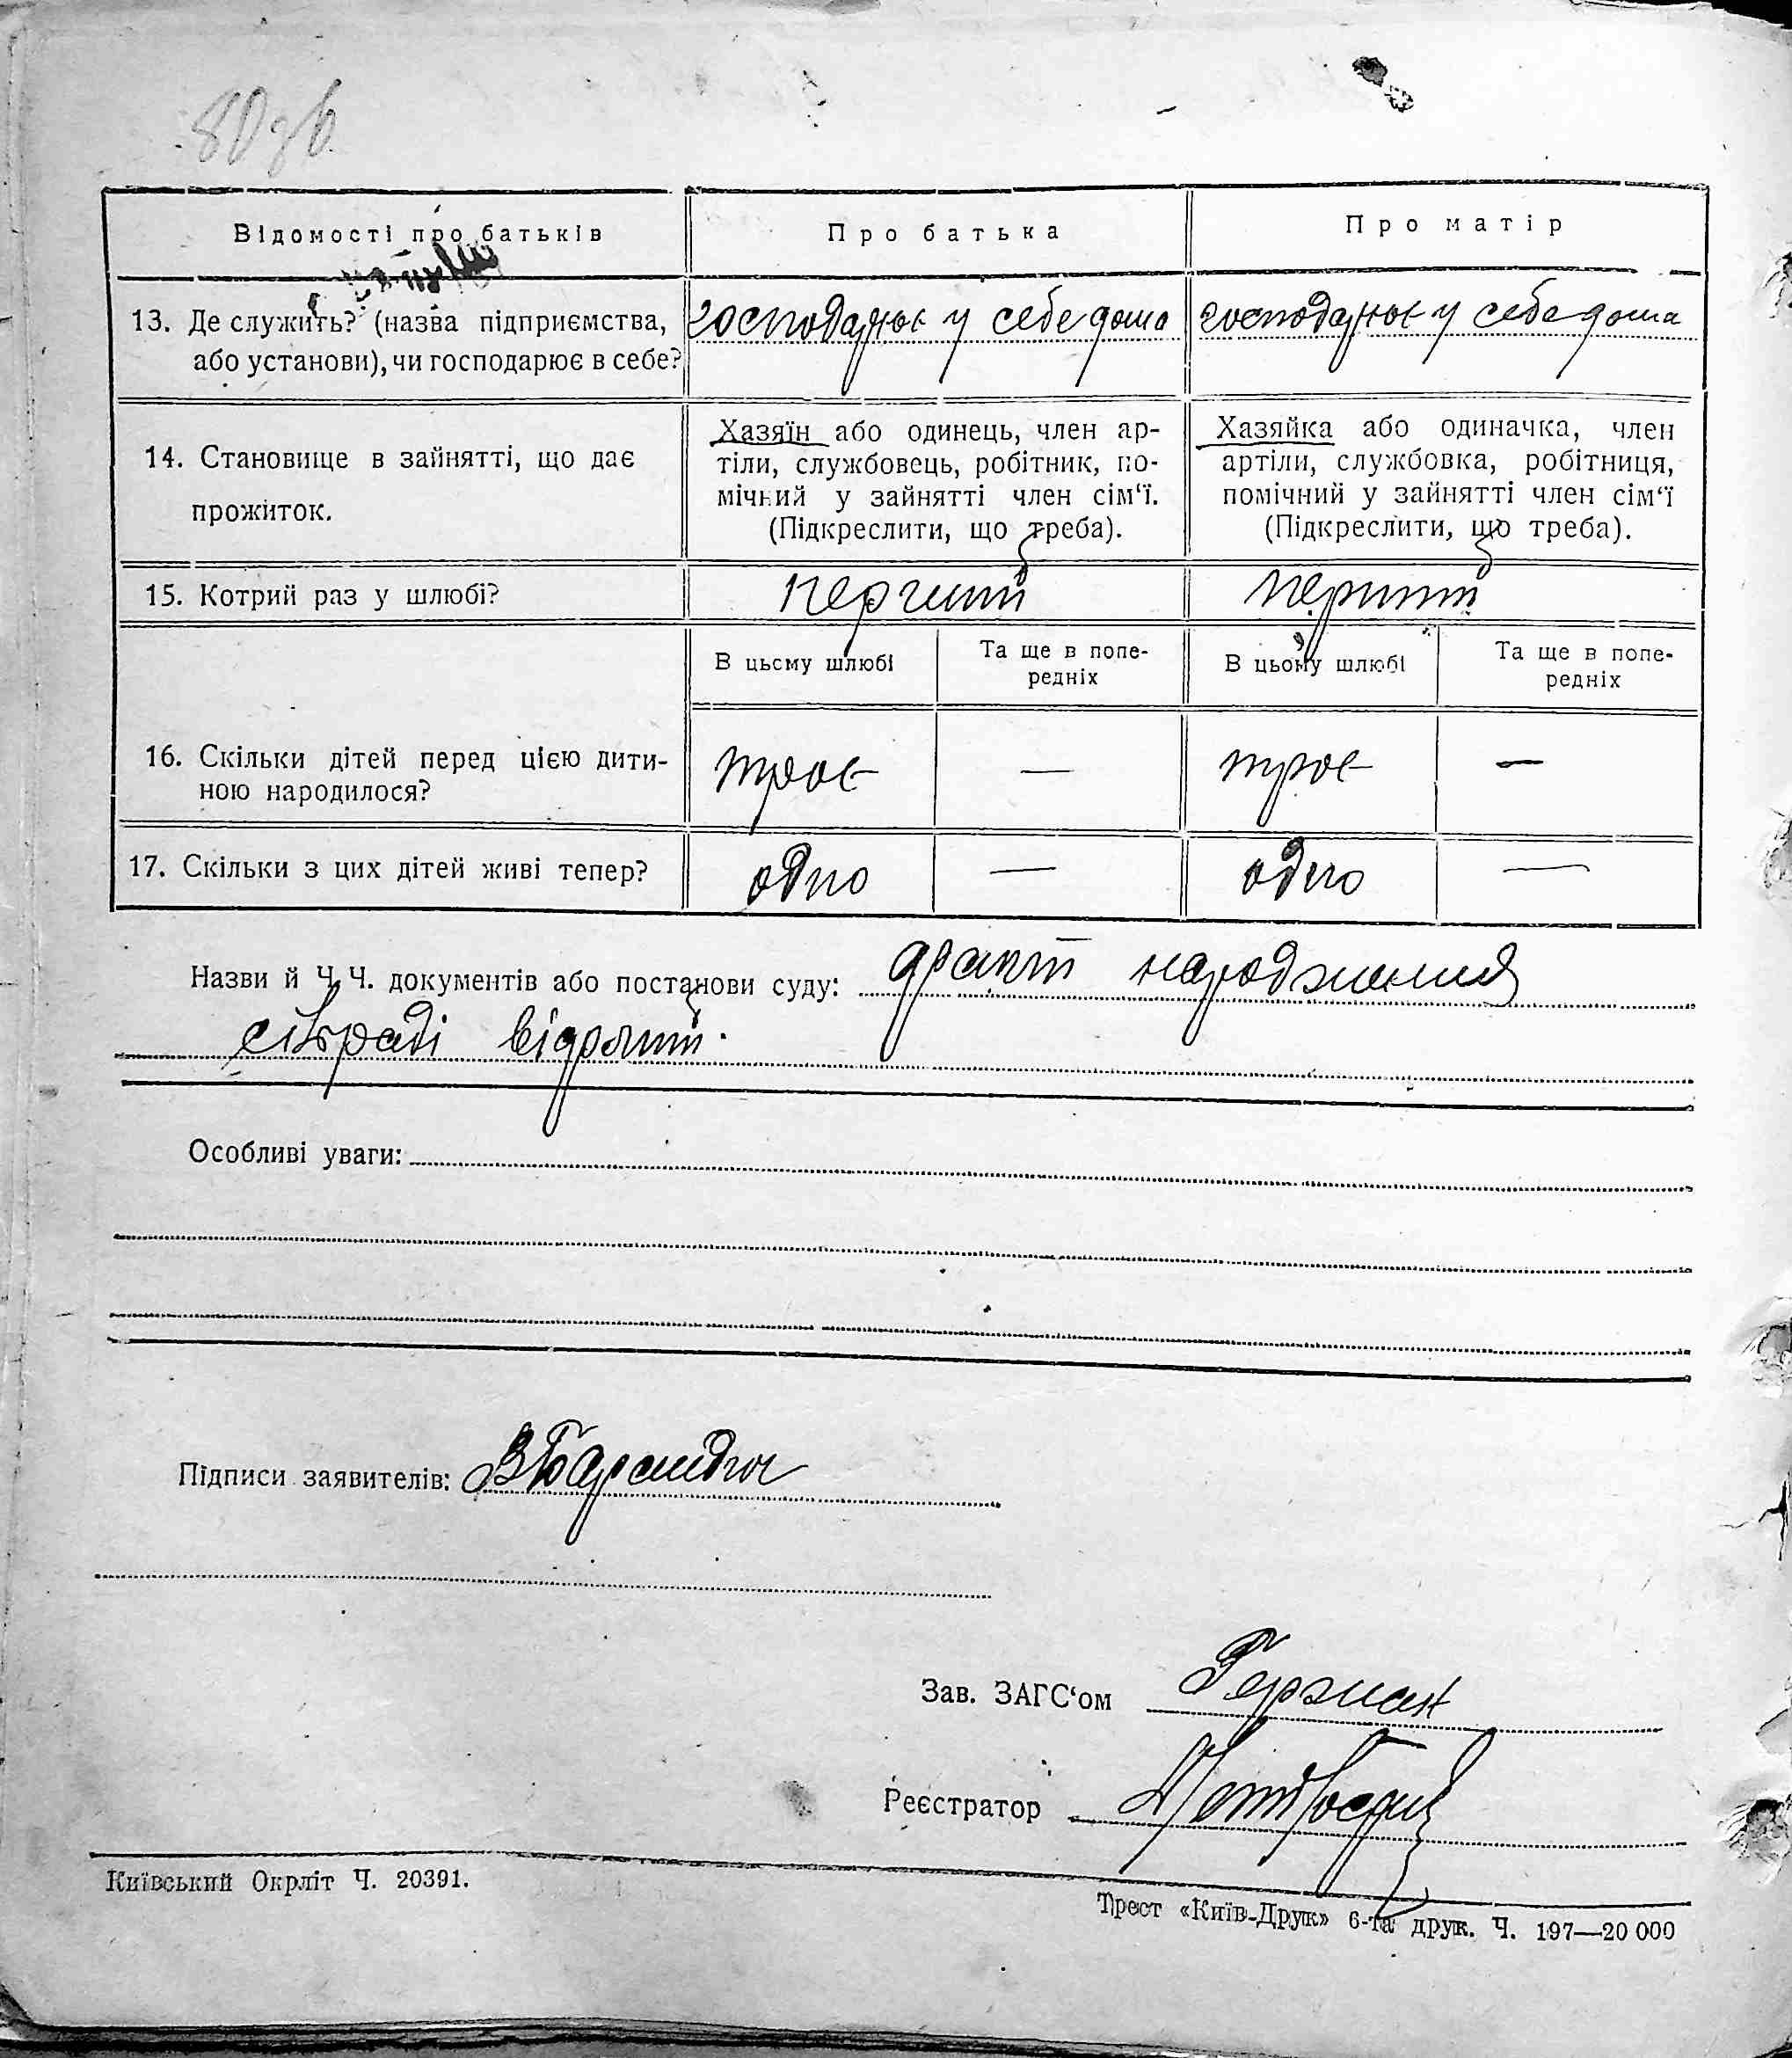 80зв.
Відомості про батьків
Про батька
Про матір
13. Де служить? (назва підприємства, або установи), чи господарює в себе?
господарює у себе дома
господарює у себе дома
14. Становище в зайнятті, що дає прожиток.
Хазяїн або одинець, член ар-
тіли, службовець, робітник, по-
мічний у зайнятті член сім‘ї.
(Підкреслити, що треба).
Хазяйка або одиначка, член
артіли, службовка, робітниця,
помічний у зайнятті член сім‘ї
(Підкреслити, що треба).
15. Котрий раз у шлюбі?
перший
перший
В цьому шлюбі
Та ще в попе-
редніх
В цьому шлюбі
Та ще в попе-
редніх
16. Скільки дітей перед цією дити-
ною народилося?
троє
—
троє
—
17. Скільки з цих дітей живі тепер?
одно
—
одно
—
Назви й Ч. Ч. документів або постанови суду: факт народження
сільраді відомий.
Особливі уваги:
Підписи заявителів:
Зав. ЗАГС‘ом Герман
Реєстратор
Київський Окрліт Ч. 20391.
Трест «Київ-Друк» 6-та друк. Ч. 197—20 000